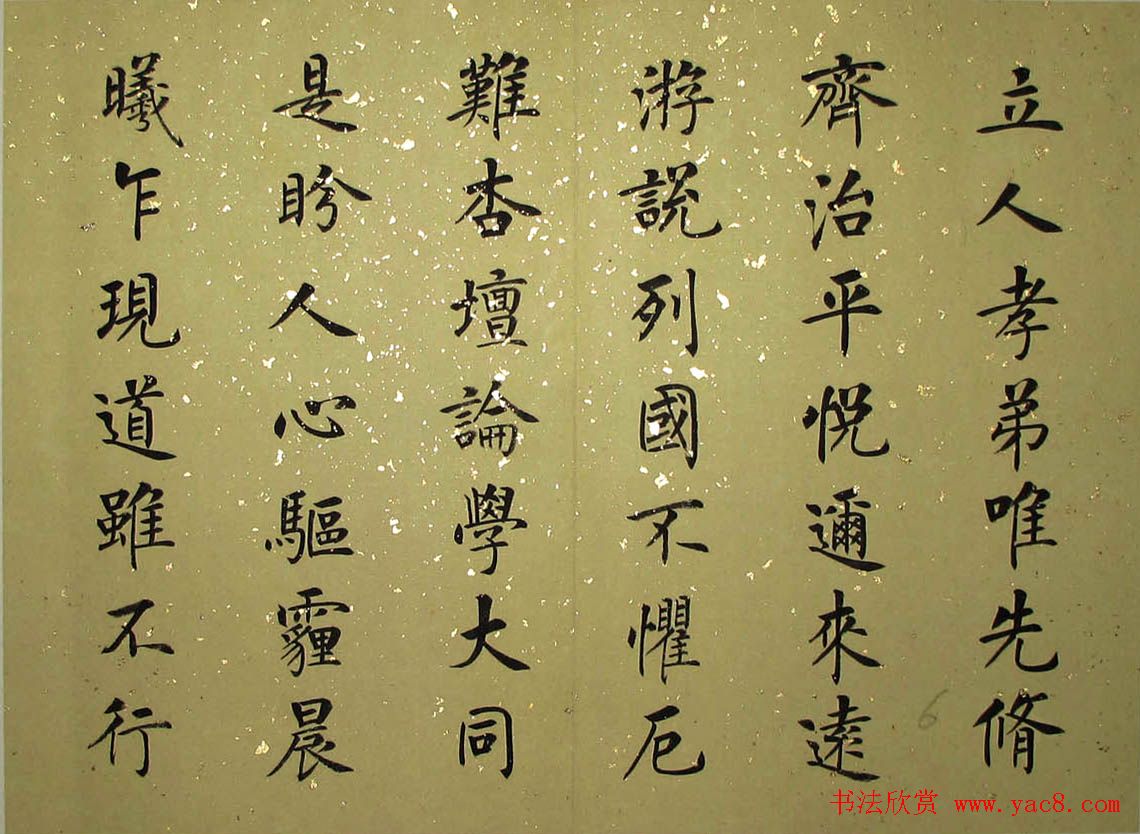 立人孝弟唯先脩
齊治平悅邇來遠
游說列國不懼厄
難杏壇論學大同
是盼人心驅霾晨
曦乍現道雖不行
6
书法欣赏 www.yac8.com